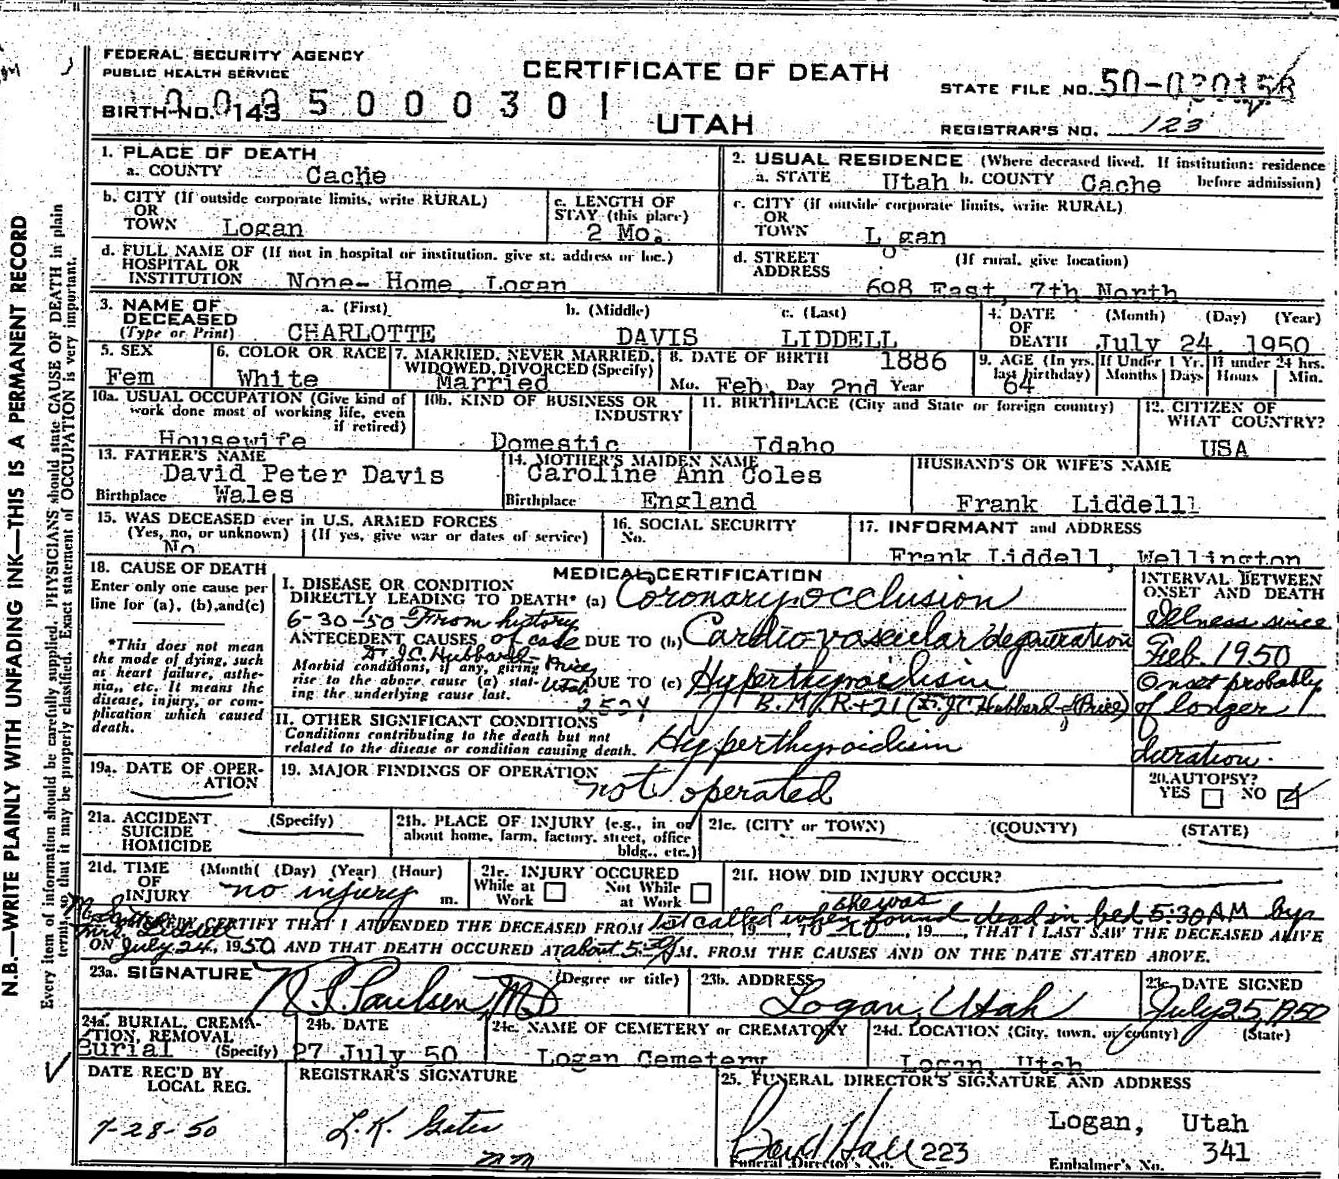 FEDERAL SECURITY AGENCY
PUBLIC HEALTH SERVICE
CERTIFICATE OF DEATH
UTAH
STATE FILE NO.
BIRTH NO. 143
0005000301
REGISTRAR'S NO. 123
1. PLACE OF DEATH
a. COUNTY Cache
2. USUAL RESIDENCE (Where deceased lived. If institution: residence before admission)
a. STATE Utah b. COUNTY Cache
b. CITY (If outside corporate limits, write RURAL) OR TOWN Logan
c. LENGTH OF STAY (this place) 2 Mo.
c. CITY (if outside corporate limits, write RURAL) OR TOWN Logan
d. FULL NAME OF (If not in hospital or institution. give st. address or loc.) HOSPITAL OR INSTITUTION None- Home, Logan
d. STREET ADDRESS (If rural, give location) 698 East, 7th North
3. NAME OF DECEASED (Type or Print) a. (First) CHARLOTTE b. (Middle) DAVIS c. (Last) LIDDELL
4. DATE OF DEATH (Month) (Day) (Year) July 24, 1950
5. SEX Fem
6. COLOR OR RACE White
7. MARRIED, NEVER MARRIED, WIDOWED, DIVORCED (Specify) Married
8. DATE OF BIRTH 1886 Mo. Feb. Day 2nd Year
9. AGE (In yrs. last birthday) 64 If Under 1 Yr. Months Days If under 24 hrs. Hours Min.
10a. USUAL OCCUPATION (Give kind of work done most of working life, even if retired) Housewife
10b. KIND OF BUSINESS OR INDUSTRY Domestic
11. BIRTHPLACE (City and State or foreign country) Idaho
12. CITIZEN OF WHAT COUNTRY? USA
13. FATHER'S NAME David Peter Davis
Birthplace Wales
14. MOTHER'S MAIDEN NAME Caroline Ann Coles
Birthplace England
HUSBAND'S OR WIFE'S NAME Frank Liddell
15. WAS DECEASED ever in U.S. ARMED FORCES (Yes, no, or unknown) (If yes, give war or dates of service) No
16. SOCIAL SECURITY No.
17. INFORMANT and ADDRESS Frank Liddell, Wellington
18. CAUSE OF DEATH
Enter only one cause per line for (a), (b), and (c)
*This does not mean the mode of dying, such as heart failure, asthenia, etc. It means the disease, injury, or complication which caused death.
MEDICAL CERTIFICATION
I. DISEASE OR CONDITION DIRECTLY LEADING TO DEATH* (a) Coronary occlusion
6-30-'50 From history of case
Dr. J.C. Hubbard Price, Utah
ANTECEDENT CAUSES DUE TO (b) Cardio-vascular degeneration
Morbid conditions, if any, giving rise to the above cause (a) stating the underlying cause last. DUE TO (c) Hyperthyroidism
2524 B.M.R+21 (Dr JC Hubbard - Price)
INTERVAL BETWEEN ONSET AND DEATH
Illness since Feb. 1950
Onset probably of longer duration.
II. OTHER SIGNIFICANT CONDITIONS
Conditions contributing to the death but not related to the disease or condition causing death. Hyperthyroidism
19a. DATE OF OPERATION
19. MAJOR FINDINGS OF OPERATION not operated
20. AUTOPSY? YES NO
21a. ACCIDENT SUICIDE HOMICIDE (Specify)
21b. PLACE OF INJURY (e.g., in or about home, farm, factory, street, office bldg., etc.)
21c. (CITY or TOWN) (COUNTY) (STATE)
21d. TIME OF INJURY (Month) (Day) (Year) (Hour) m. no injury
21e. INJURY OCCURED While at Work Not While at Work
21f. HOW DID INJURY OCCUR?
CERTIFY THAT I ATTENDED THE DECEASED FROM 1st called when she was found dead in bed 5:30 AM by
19 , TO , 19 , THAT I LAST SAW THE DECEASED ALIVE
ON July 24, 1950 AND THAT DEATH OCCURED AT about 5:30 A M. FROM THE CAUSES AND ON THE DATE STATED ABOVE.
23a. SIGNATURE (Degree or title) Paulsen, MD
23b. ADDRESS Logan, Utah
23c. DATE SIGNED July 25, 1950
24a. BURIAL, CREMATION, REMOVAL (Specify) Burial
24b. DATE 27 July 50
24c. NAME OF CEMETERY or CREMATORY Logan Cemetery
24d. LOCATION (City, town, or county) (State) Logan, Utah
DATE REC'D BY LOCAL REG. 7-28-50
REGISTRAR'S SIGNATURE
25. FUNERAL DIRECTOR'S SIGNATURE AND ADDRESS
Logan, Utah
Hall 223 341
Funeral Director's No. Embalmer's No.
N.B.—WRITE PLAINLY WITH UNFADING INK—THIS IS A PERMANENT RECORD
Every item of information should be carefully supplied. PHYSICIANS should state CAUSE OF DEATH in plain
terms, so that it may be properly classified. Exact statement of OCCUPATION is very important.